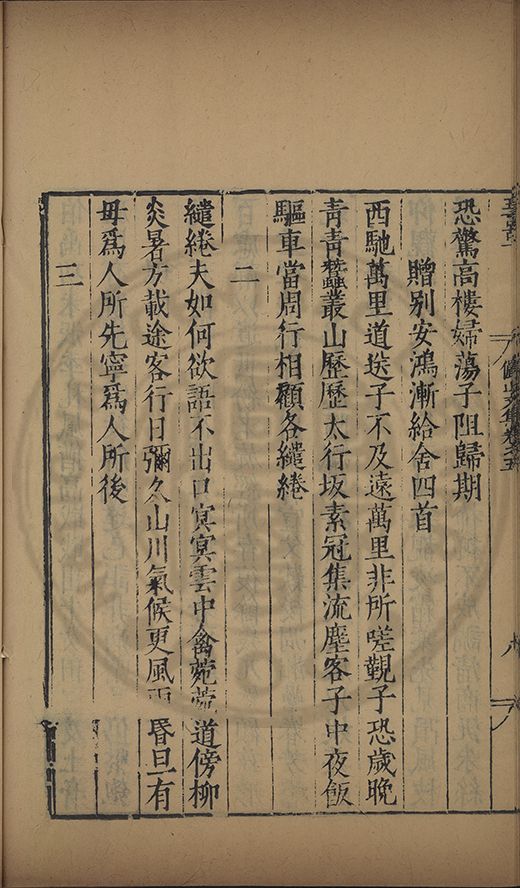 恐驚高樓婦蕩子阻歸期
贈別安鴻漸給舍四首
西馳萬里道送子不及遠萬里非所嗟觀子恐歲晚
青青蠶叢山歷歷太行坂素冠集流塵客子中夜飯
驅車當周行相顧各繾綣
二
繾綣夫如何欲語不出口寘寘雲中禽菀菀道傍柳
炎暑方載途客行日彌久山川氣候更風雨昏旦有
毋爲人所先寧爲人所後
三